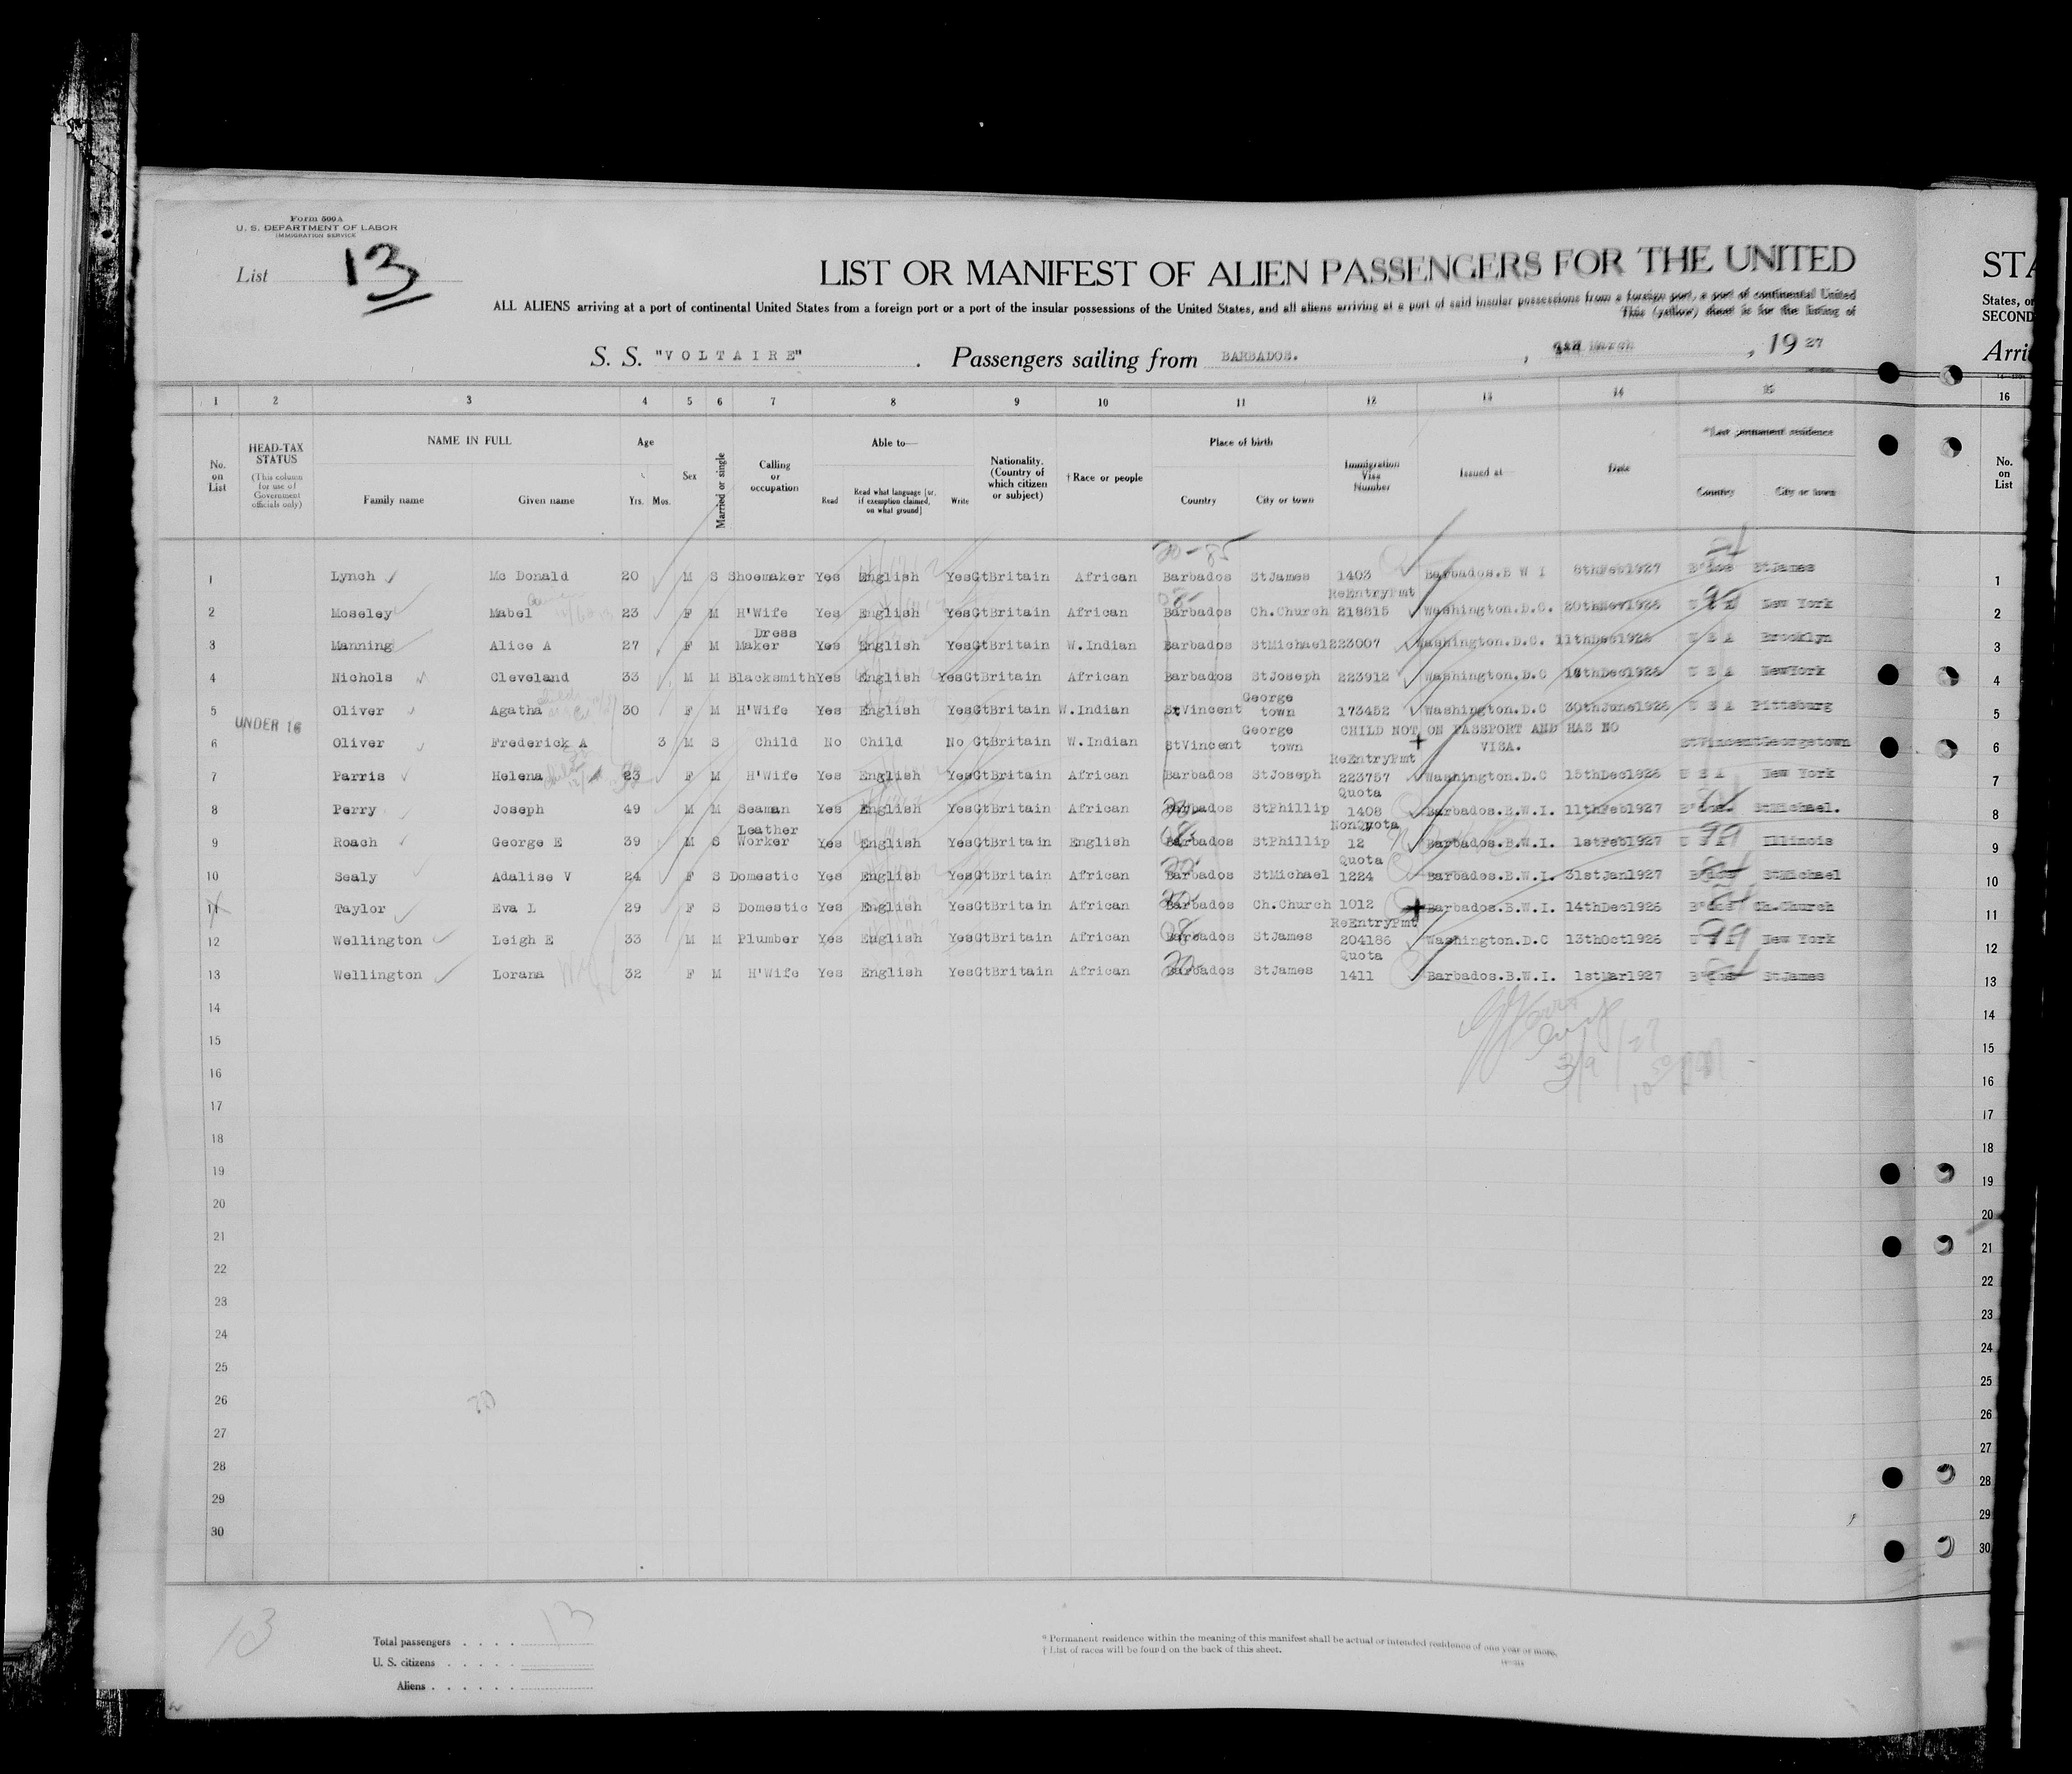 Form 500 A
U. S. DEPARTMENT OF LABOR
IMMIGRATION SERVICE
List 13
LIST OR MANIFEST OF ALIEN PASSENGERS FOR THE UNITED
STA
ALL ALIENS arriving at a port of continental United States from a foreign port or a part of the insular possessions of the United States, and all aliens arriving at a port of said insular possessions from a foreign port, a port of continental United
States, or
This (yellow) sheet is for the listing of
SECOND
S. S. "VOLTAIRE" . Passengers sailing from BARBADOS. , March , 19 27
Arri
1 2 3 4 5 6 7 8 9 10 11 12 13 14 15 16
No. on List
HEAD-TAX STATUS (This column for use of Government officials only)
NAME IN FULL
Family name Given name
Age
Yrs. Mos.
Sex
Married or single
Calling or occupation
Able to—
Read Read what language [or, if exemption claimed, on what ground] Write
Nationality. (Country of which citizen or subject)
† Race or people
Place of birth
Country City or town
Immigration Visa Number
Issued at—
Date
*Last permanent residence
Country City or town
No. on List
20-85
1 Lynch Mc Donald 20 M S Shoemaker Yes English Yes GtBritain African Barbados StJames 1403 Barbados.B W I 8thFeb1927 B'dos StJames 1
2 Moseley Mabel 23 F M H'Wife Yes English Yes GtBritain African Barbados Ch.Church ReEntryPmt 218815 Washington.D.C. 20thNov1926 U S A New York 2
3 Manning Alice A 27 F M Dress Maker Yes English Yes GtBritain W.Indian Barbados StMichael 223007 Washington.D.C. 11thDec1926 U S A Brooklyn 3
4 Nichols Cleveland 33 M M Blacksmith Yes English Yes GtBritain African Barbados StJoseph 223912 Washington.D.C Dec1926 U S A NewYork 4
5 Oliver Agatha 30 F M H'Wife Yes English Yes GtBritain W.Indian StVincent George town 173452 Washington.D.C 30thJune1926 U S A Pittsburg 5
UNDER 16
6 Oliver Frederick A 3 M S Child No Child No GtBritain W.Indian StVincent George town CHILD NOT ON PASSPORT AND HAS NO VISA. StVincent Georgetown 6
7 Parris Helena 23 F M H'Wife Yes English Yes GtBritain African Barbados StJoseph ReEntryPmt 223757 Washington.D.C 15thDec1926 U S A New York 7
8 Perry Joseph 49 M M Seaman Yes English Yes GtBritain African Barbados StPhillip Quota 1408 Barbados.B.W.I. 11thFeb1927 B'dos. StMichael. 8
9 Roach George E 39 M S Leather Worker Yes English Yes GtBritain English Barbados StPhillip NonQuota 12 Barbados.B.W.I. 1stFeb1927 Illinois 9
10 Sealy Adalise V 24 F S Domestic Yes English Yes GtBritain African Barbados StMichael Quota 1224 Barbados.B.W.I. 31stJan1927 B'dos StMichael 10
11 Taylor Eva L 29 F S Domestic Yes English Yes GtBritain African Barbados Ch.Church 1012 Barbados.B.W.I. 14thDec1926 B'dos Ch.Church 11
12 Wellington Leigh E 33 M M Plumber Yes English Yes GtBritain African Barbados StJames ReEntryPmt 204186 Washington.D.C 13thOct1926 New York 12
13 Wellington Lorana 32 F M H'Wife Yes English Yes GtBritain African Barbados StJames Quota 1411 Barbados.B.W.I. 1stMar1927 B'dos StJames 13
14 14
15 15
3/9/27
16 16
17 17
18 18
19 19
20 20
21 21
22 22
23 23
24 24
25 25
26 26
27 27
28 28
29 29
30 30
13
Total passengers . . . . 13
U. S. citizens . . . . .
Aliens . . . . . .
* Permanent residence within the meaning of this manifest shall be actual or intended residence of one year or more.
† List of races will be found on the back of this sheet.